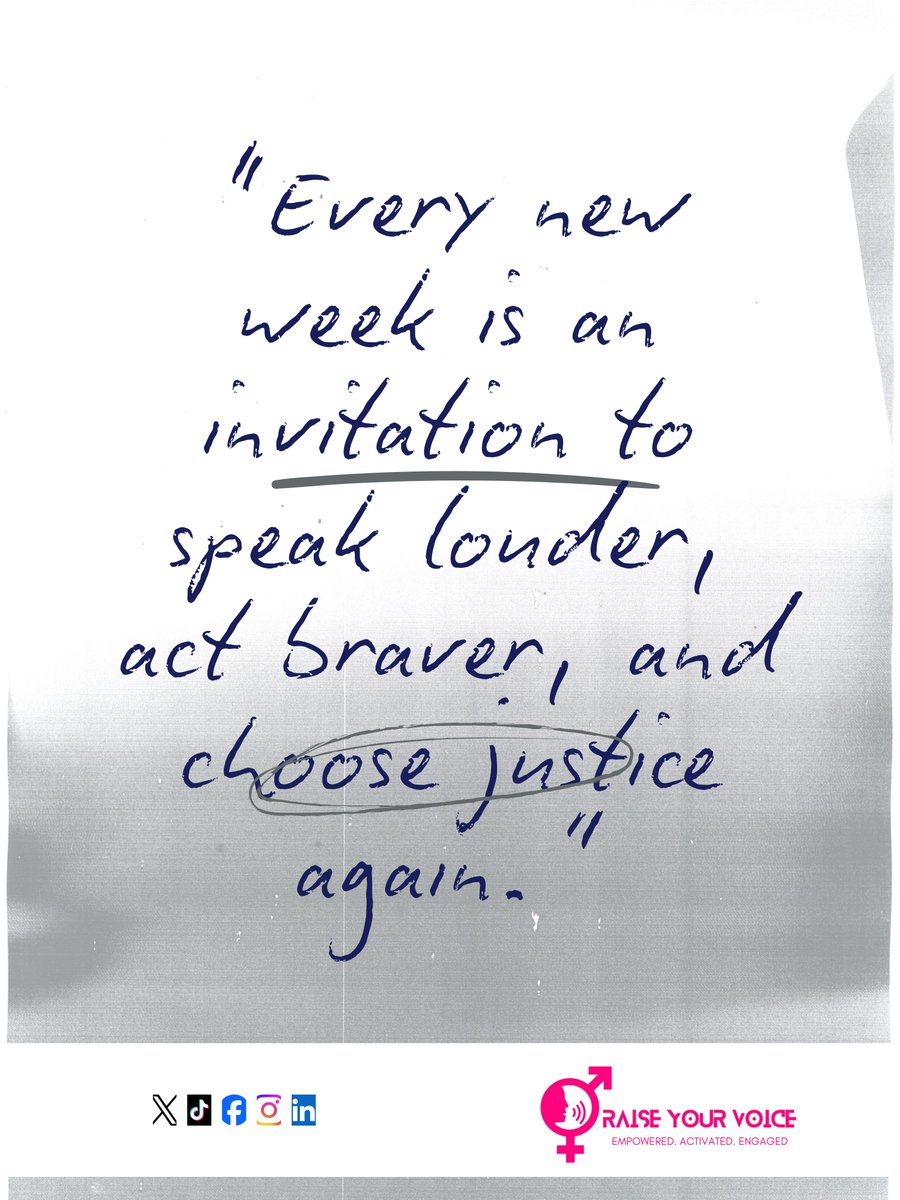 "Every new
week is an
invitation to
speak louder,
act braver, and
choose justice
again."
RAISE YOUR VOICE
EMPOWERED. ACTIVATED. ENGAGED